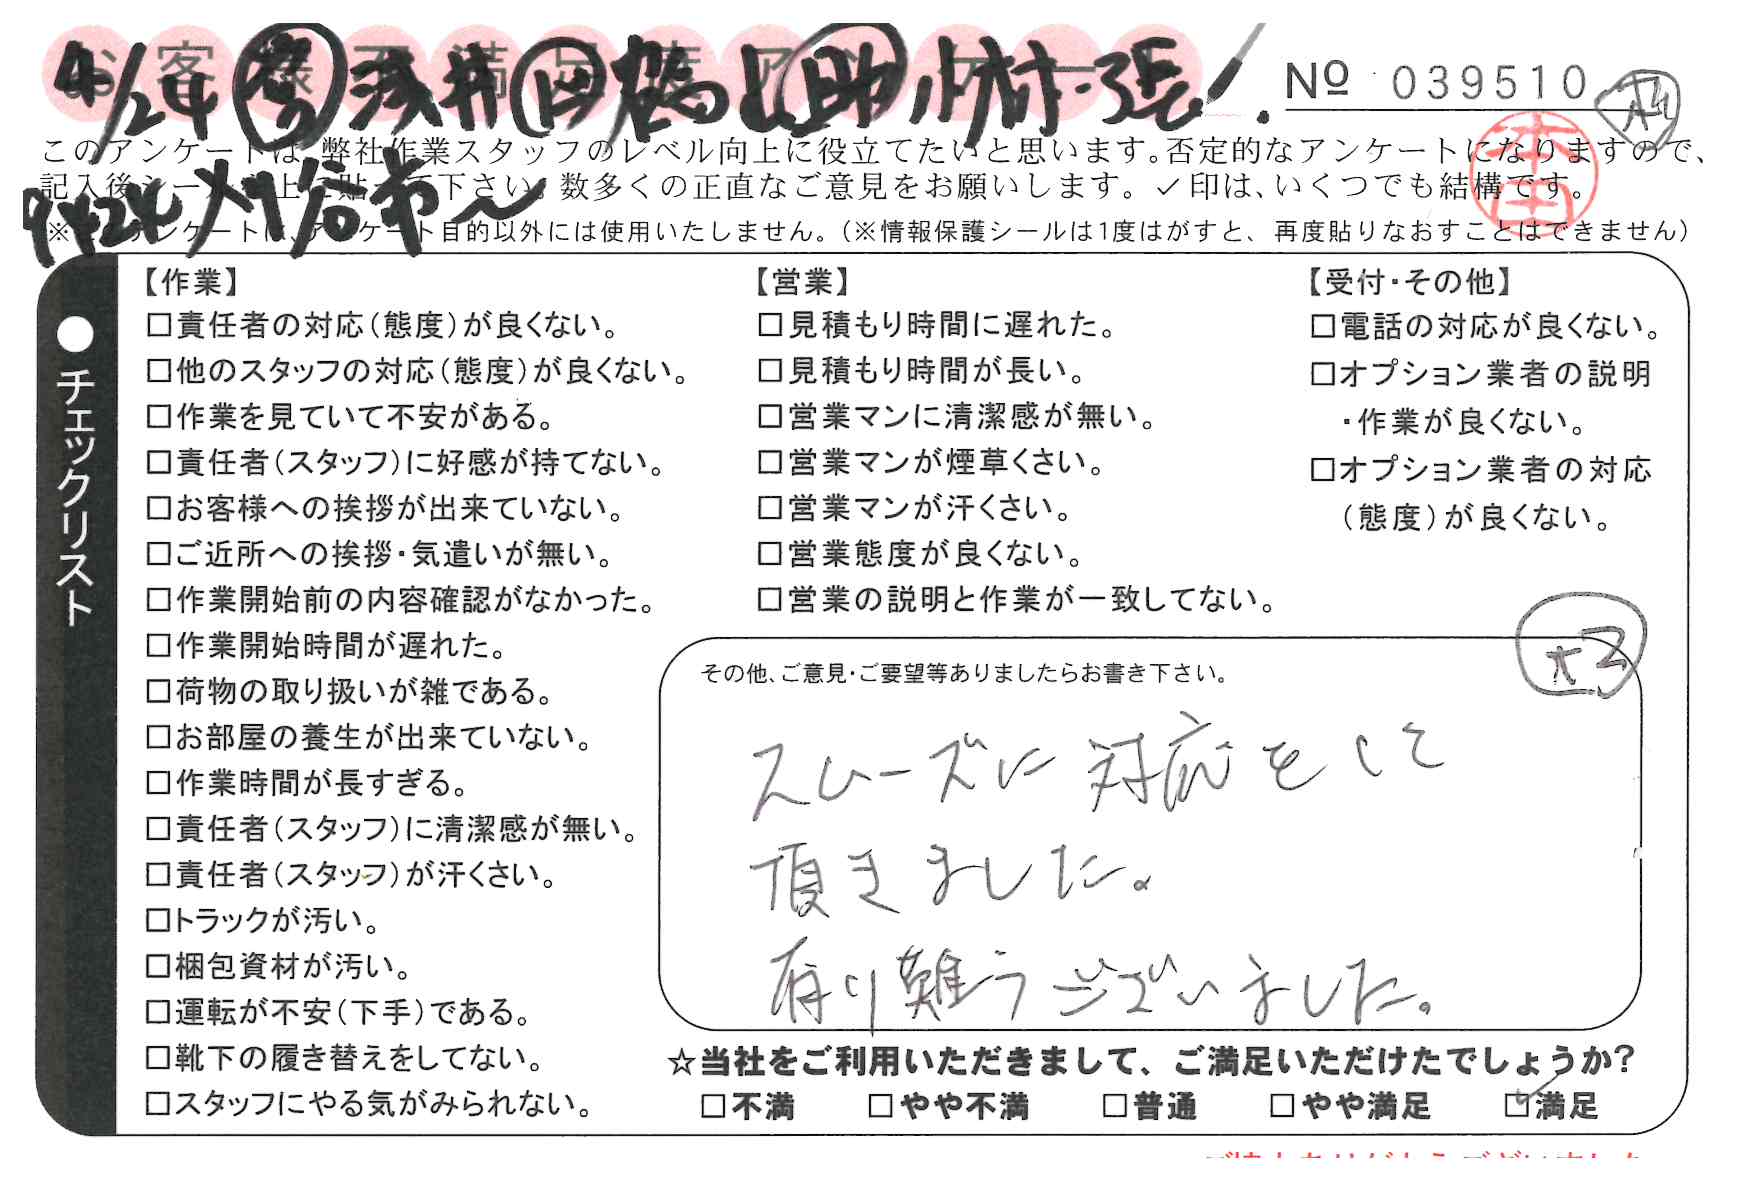 4/24 営 浅井 作 鶴上 助 小村・張
Nº 039510
本田
このアンケートは、弊社作業スタッフのレベル向上に役立てたいと思います。否定的なアンケートになりますので、
記入後シールを上に貼って下さい。数多くの正直なご意見をお願いします。✓印は、いくつでも結構です。
刈谷市〜
※このアンケートは、アンケート目的以外には使用いたしません。(※情報保護シールは1度はがすと、再度貼りなおすことはできません)
●チェックリスト
【作業】
□責任者の対応(態度)が良くない。
□他のスタッフの対応(態度)が良くない。
□作業を見ていて不安がある。
□責任者(スタッフ)に好感が持てない。
□お客様への挨拶が出来ていない。
□ご近所への挨拶・気遣いが無い。
□作業開始前の内容確認がなかった。
□作業開始時間が遅れた。
□荷物の取り扱いが雑である。
□お部屋の養生が出来ていない。
□作業時間が長すぎる。
□責任者(スタッフ)に清潔感が無い。
□責任者(スタッフ)が汗くさい。
□トラックが汚い。
□梱包資材が汚い。
□運転が不安(下手)である。
□靴下の履き替えをしてない。
□スタッフにやる気がみられない。
【営業】
□見積もり時間に遅れた。
□見積もり時間が長い。
□営業マンに清潔感が無い。
□営業マンが煙草くさい。
□営業マンが汗くさい。
□営業態度が良くない。
□営業の説明と作業が一致してない。
【受付・その他】
□電話の対応が良くない。
□オプション業者の説明
・作業が良くない。
□オプション業者の対応
(態度)が良くない。
その他、ご意見・ご要望等ありましたらお書き下さい。
スムーズに対応をして
頂きました。
有り難うございました。
☆当社をご利用いただきまして、ご満足いただけたでしょうか?
□不満 □やや不満 □普通 □やや満足 ☑満足